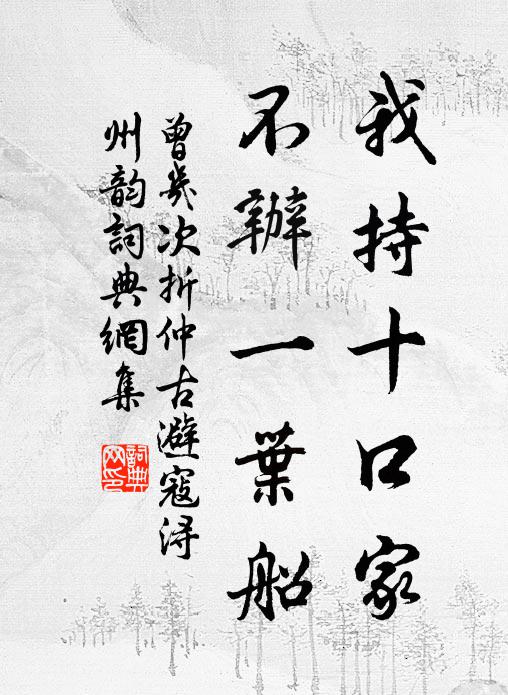 我持十口家
不辦一葉船
曾幾次折仲古避寇浔
州韵詞典網集
詞典网印